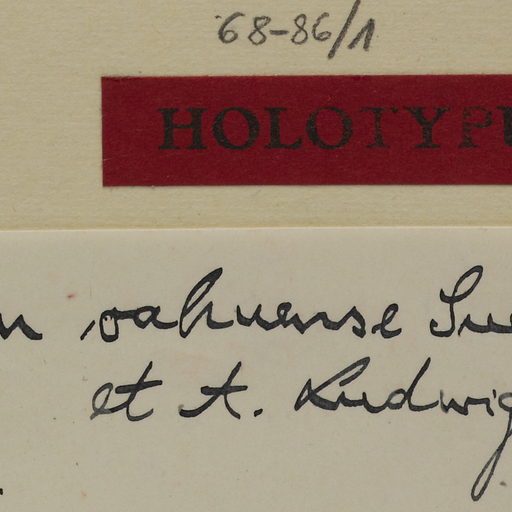 68-86/1
HOLOTYPU
n oahuense Sue
et A. Ludwig